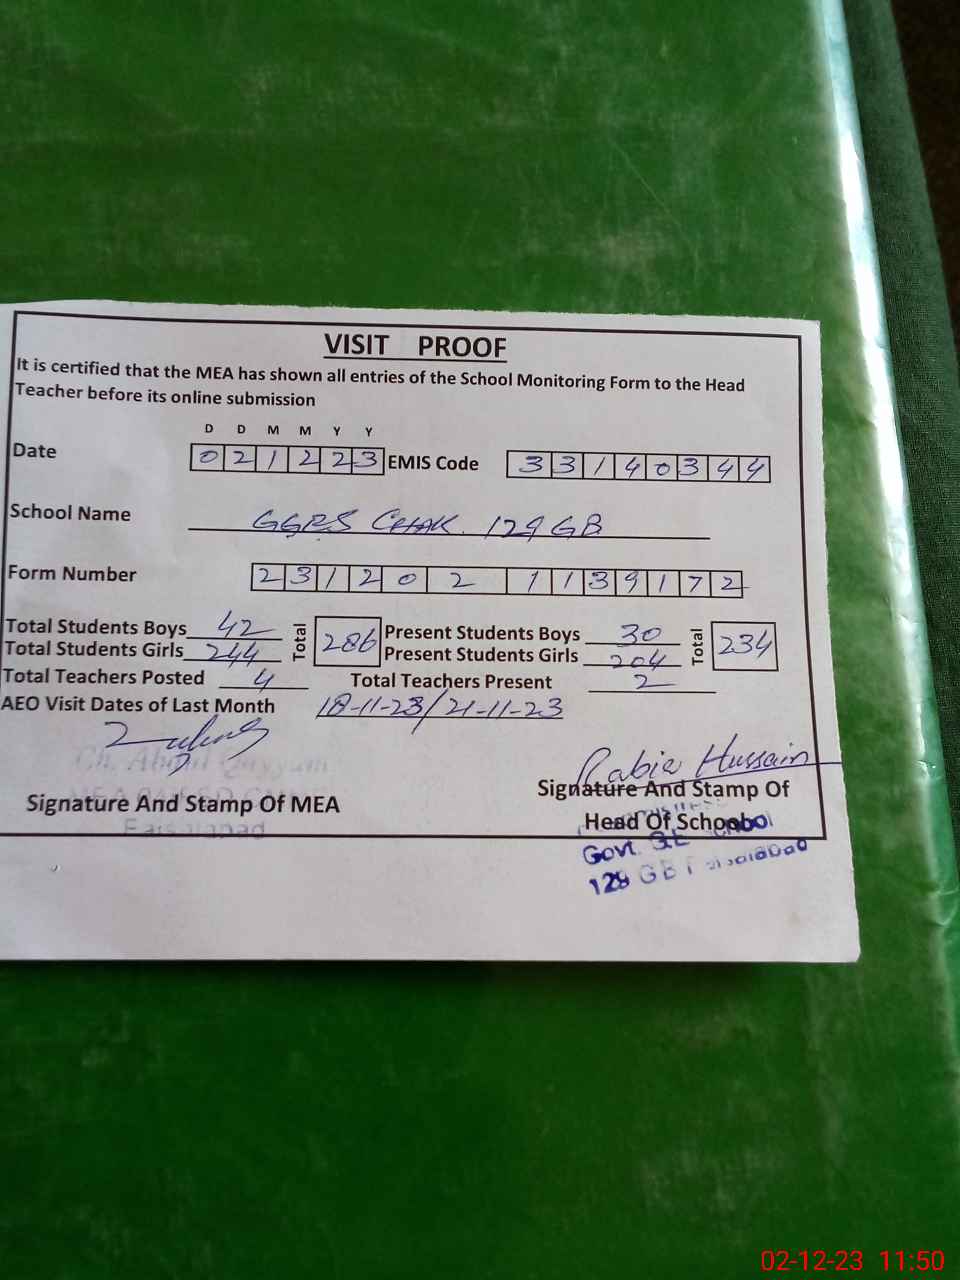 VISIT PROOF
It is certified that the MEA has shown all entries of the School Monitoring Form to the Head
Teacher before its online submission
D D M M Y Y
Date 0 2 1 2 2 3 EMIS Code 3 3 1 4 0 3 4 4
School Name GGPS CHAK 129 GB
Form Number 2 3 1 2 0 2 1 1 3 9 1 7 2
Total Students Boys 42 Total 286 Present Students Boys 30 Total 234
Total Students Girls 244 Present Students Girls 204
Total Teachers Posted 4 Total Teachers Present 2
AEO Visit Dates of Last Month 18-11-23/21-11-23
Ch. Abdul Qayyum
Rabia Hussain
Signature And Stamp Of MEA
Signature And Stamp Of
Head Of School
Faisalabad
Govt.
129 GB Faisalabad
02-12-23 11:50